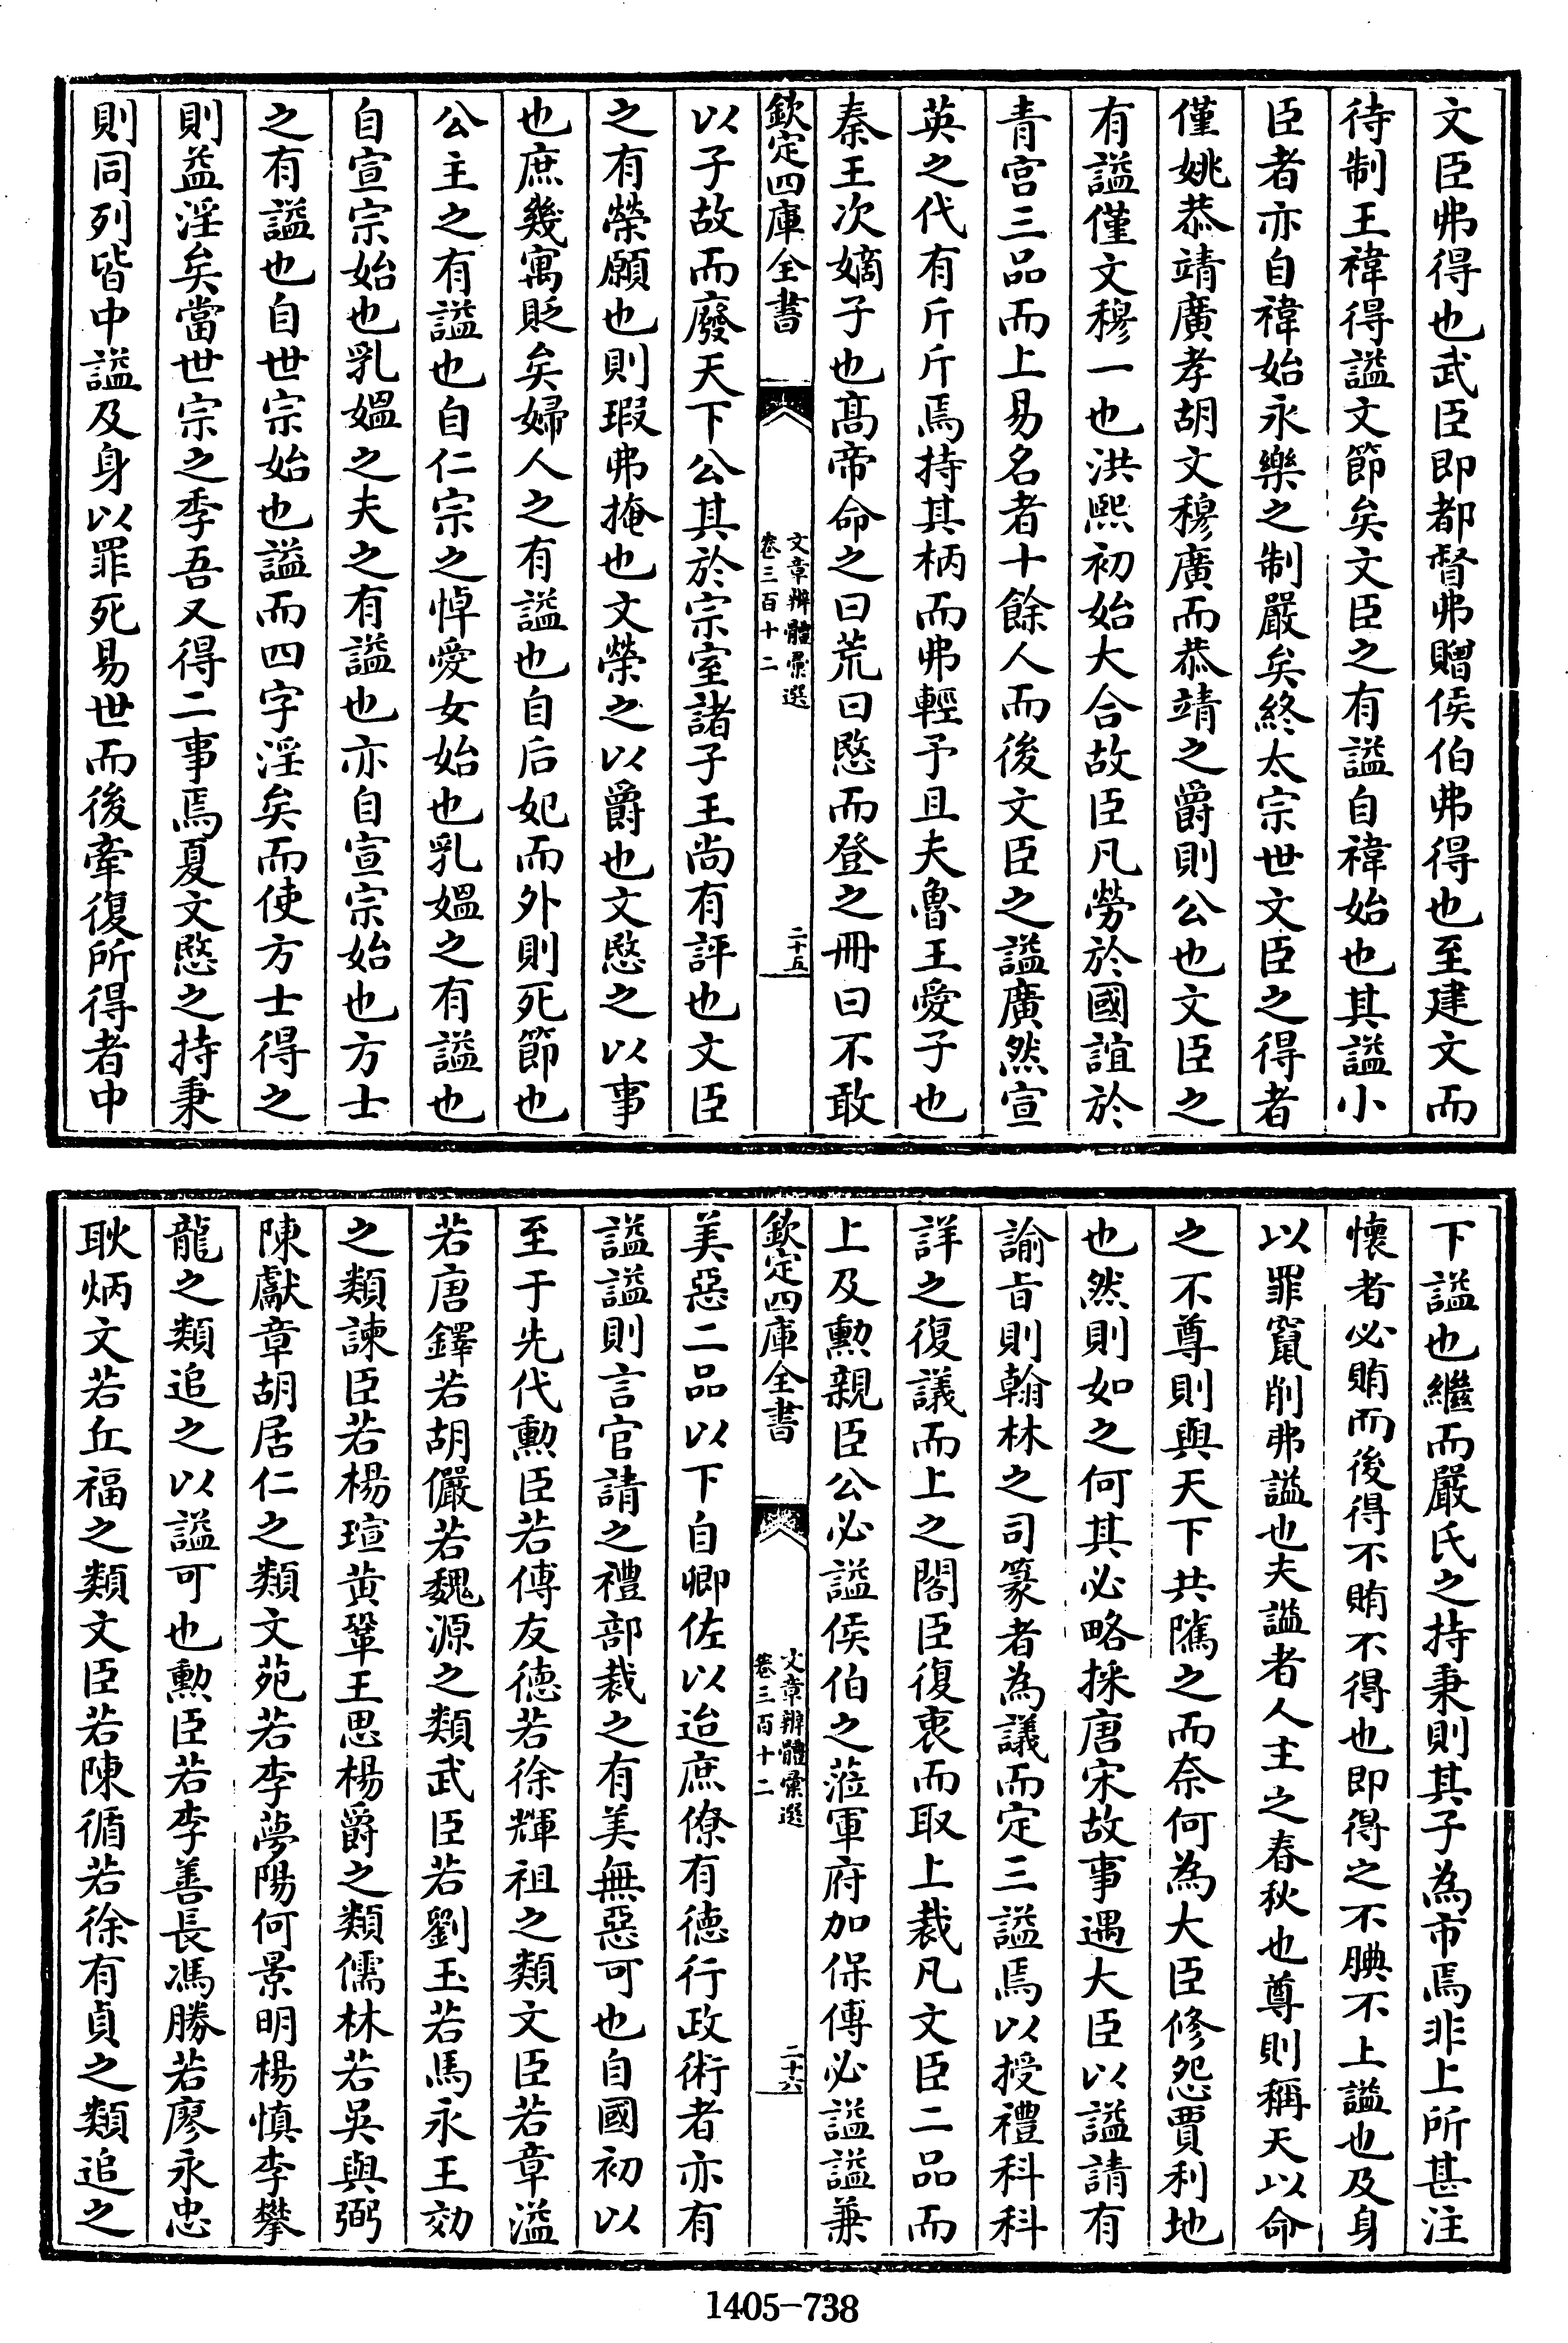 文臣弗得也武臣即都督弗贈侯伯弗得也至建文而
待制王褘得謚文節矣文臣之有謚自褘始也其謚小
臣者亦自褘始永樂之制嚴矣終太宗世文臣之得者
僅姚恭靖廣孝胡文穆廣而恭靖之爵則公也文臣之
有謚僅文穆一也洪熙初始大合故臣凡勞於國誼於
青宫三品而上易名者十餘人而後文臣之謚廣然宣
英之代有斤斤焉持其柄而弗輕予且夫魯王愛子也
秦王次嫡子也髙帝命之曰荒曰愍而登之冊曰不敢
欽定四庫全書
文章辨體彚選
卷三百十二
二十五
以子故而廢天下公其於宗室諸子王尚有評也文臣
之有榮願也則瑕弗掩也文榮之以爵也文愍之以事
也庶幾寓貶矣婦人之有謚也自后妃而外則死節也
公主之有謚也自仁宗之悼愛女始也乳媼之有謚也
自宣宗始也乳媼之夫之有謚也亦自宣宗始也方士
之有謚也自世宗始也謚而四字淫矣而使方士得之
則益淫矣當世宗之季吾又得二事焉夏文愍之持秉
則同列皆中謚及身以罪死易世而後牽復所得者中
下謚也繼而嚴氏之持秉則其子為市焉非上所甚注
懷者必賄而後得不賄不得也即得之不腆不上謚也及身
以罪竄削弗謚也夫謚者人主之春秋也尊則稱天以命
之不尊則與天下共隲之而奈何為大臣修怨賈利地
也然則如之何其必略採唐宋故事遇大臣以謚請有
諭旨則翰林之司篆者為議而定三謚焉以授禮科科
詳之復議而上之閣臣復衷而取上裁凡文臣二品而
上及勲親臣公必謚侯伯之蒞軍府加保傅必謚謚兼
欽定四庫全書
文章辨體彚選
卷三百十二
二十六
美惡二品以下自卿佐以迨庶僚有德行政術者亦有
謚謚則言官請之禮部裁之有美無惡可也自國初以
至于先代勲臣若傅友德若徐輝祖之類文臣若章溢
若唐鐸若胡儼若魏源之類武臣若劉玉若馬永王効
之類諫臣若楊瑄黄鞏王思楊爵之類儒林若吳與弼
陳獻章胡居仁之類文苑若李夢陽何景明楊慎李攀
龍之類追之以謚可也勲臣若李善長馮勝若廖永忠
耿炳文若丘福之類文臣若陳循若徐有貞之類追之
1405-738